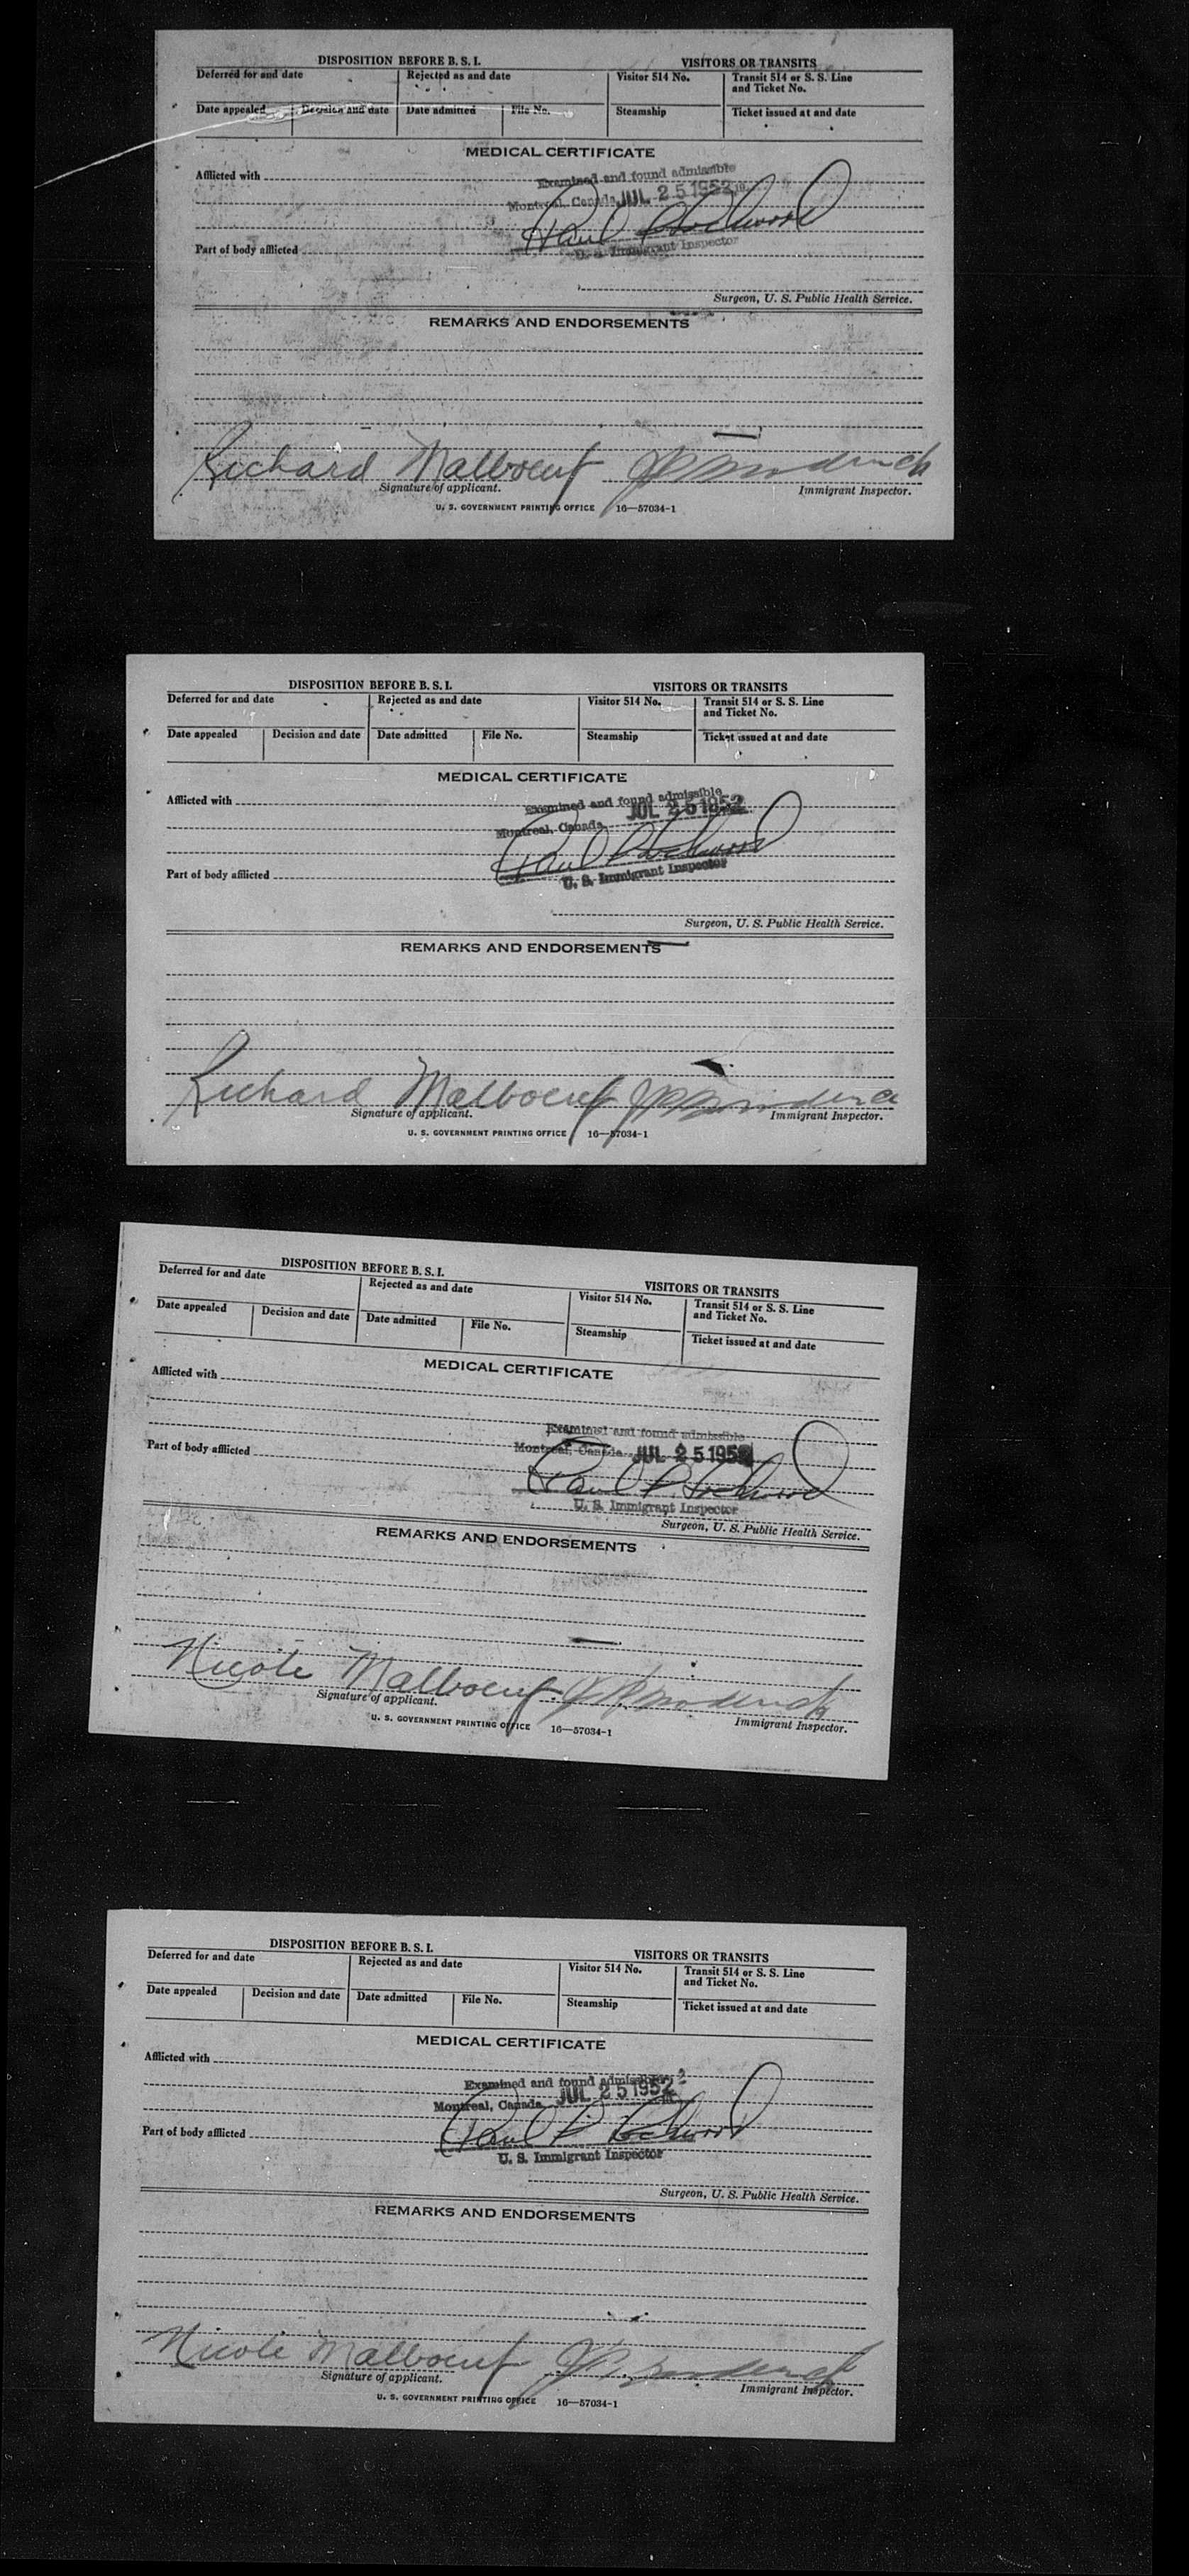 DISPOSITION BEFORE B. S. I.
VISITORS OR TRANSITS
Deferred for and date
Rejected as and date
Visitor 514 No.
Transit 514 or S. S. Line
and Ticket No.
Date appealed
Decision and date
Date admitted
File No.
Steamship
Ticket issued at and date
MEDICAL CERTIFICATE
Afflicted with
Examined and found admissible
Montreal, Canada JUL 25 1952
Paul Lockwood
Part of body afflicted
U. S. Immigrant Inspector
Surgeon, U. S. Public Health Service.
REMARKS AND ENDORSEMENTS
Richard Malboeuf
Signature of applicant.
Immigrant Inspector.
U. S. GOVERNMENT PRINTING OFFICE 16—57034-1
DISPOSITION BEFORE B. S. I.
VISITORS OR TRANSITS
Deferred for and date
Rejected as and date
Visitor 514 No.
Transit 514 or S. S. Line
and Ticket No.
Date appealed
Decision and date
Date admitted
File No.
Steamship
Ticket issued at and date
MEDICAL CERTIFICATE
Afflicted with
Examined and found admissible
JUL 25 1952
Montreal, Canada
Paul Lockwood
Part of body afflicted
U. S. Immigrant Inspector
Surgeon, U. S. Public Health Service.
REMARKS AND ENDORSEMENTS
Richard Malboeuf
Signature of applicant.
Immigrant Inspector.
U. S. GOVERNMENT PRINTING OFFICE 16—57034-1
DISPOSITION BEFORE B. S. I.
VISITORS OR TRANSITS
Deferred for and date
Rejected as and date
Visitor 514 No.
Transit 514 or S. S. Line
and Ticket No.
Date appealed
Decision and date
Date admitted
File No.
Steamship
Ticket issued at and date
MEDICAL CERTIFICATE
Afflicted with
Examined and found admissible
Part of body afflicted
Montreal, Canada JUL 25 1952
Paul Lockwood
U. S. Immigrant Inspector
Surgeon, U. S. Public Health Service.
REMARKS AND ENDORSEMENTS
Nicole Malboeuf
Signature of applicant.
Immigrant Inspector.
U. S. GOVERNMENT PRINTING OFFICE 16—57034-1
DISPOSITION BEFORE B. S. I.
VISITORS OR TRANSITS
Deferred for and date
Rejected as and date
Visitor 514 No.
Transit 514 or S. S. Line
and Ticket No.
Date appealed
Decision and date
Date admitted
File No.
Steamship
Ticket issued at and date
MEDICAL CERTIFICATE
Afflicted with
Examined and found admissible
JUL 25 1952
Montreal, Canada
Paul Lockwood
Part of body afflicted
U. S. Immigrant Inspector
Surgeon, U. S. Public Health Service.
REMARKS AND ENDORSEMENTS
Nicole Malboeuf
Signature of applicant.
Immigrant Inspector.
U. S. GOVERNMENT PRINTING OFFICE 16—57034-1